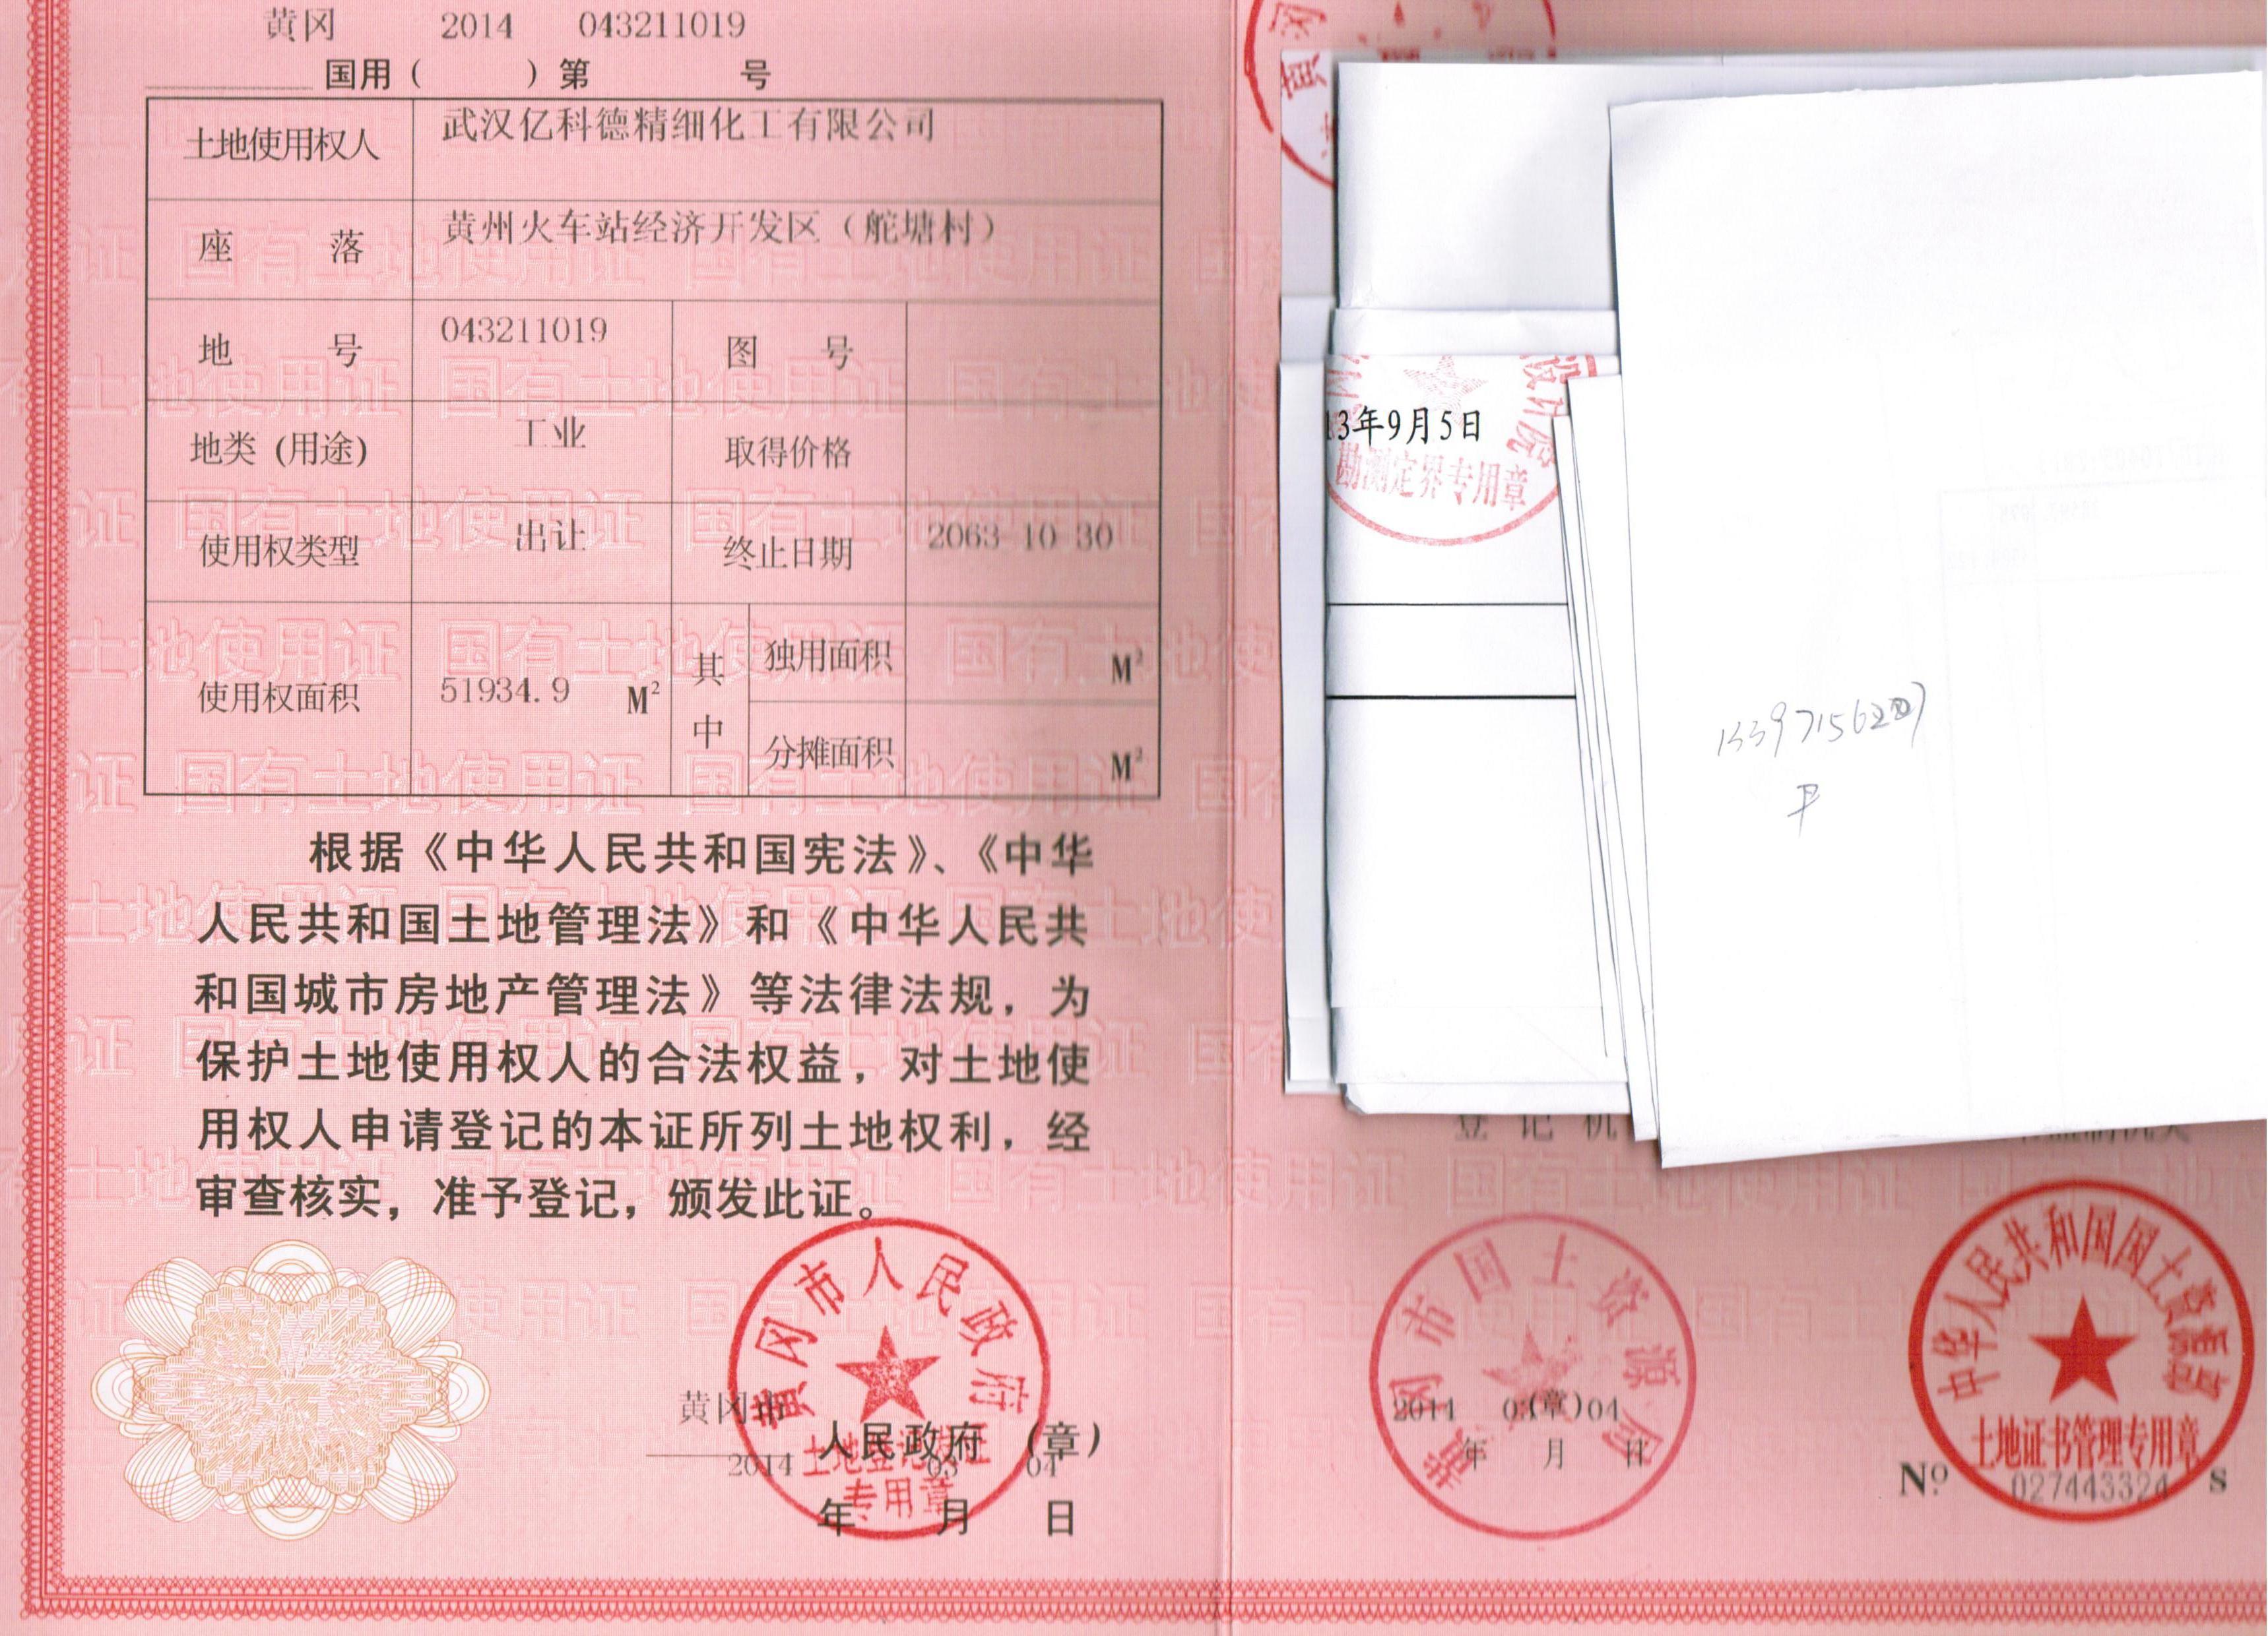 黄冈 2014 043211019
国用（ ）第 号
土地使用权人 武汉亿科德精细化工有限公司
座落 黄州火车站经济开发区（舵塘村）
地号 043211019 图号
地类（用途） 工业 取得价格
使用权类型 出让 终止日期 2063-10-30
使用权面积 51934.9 M² 其中 独用面积 M²
分摊面积 M²
根据《中华人民共和国宪法》、《中华
人民共和国土地管理法》和《中华人民共
和国城市房地产管理法》等法律法规，为
保护土地使用权人的合法权益，对土地使
用权人申请登记的本证所列土地权利，经
审查核实，准予登记，颁发此证。
黄冈市人民政府
土地登记
专用章
黄冈市
人民政府（章）
2014 03 04
年 月 日
黄冈
3年9月5日
设计院
勘测定界专用章
登记机
黄冈市国土资源局
2014 03 (章) 04
年 月 日
中华人民共和国国土资源部
土地证书管理专用章
Nº 027443324 S